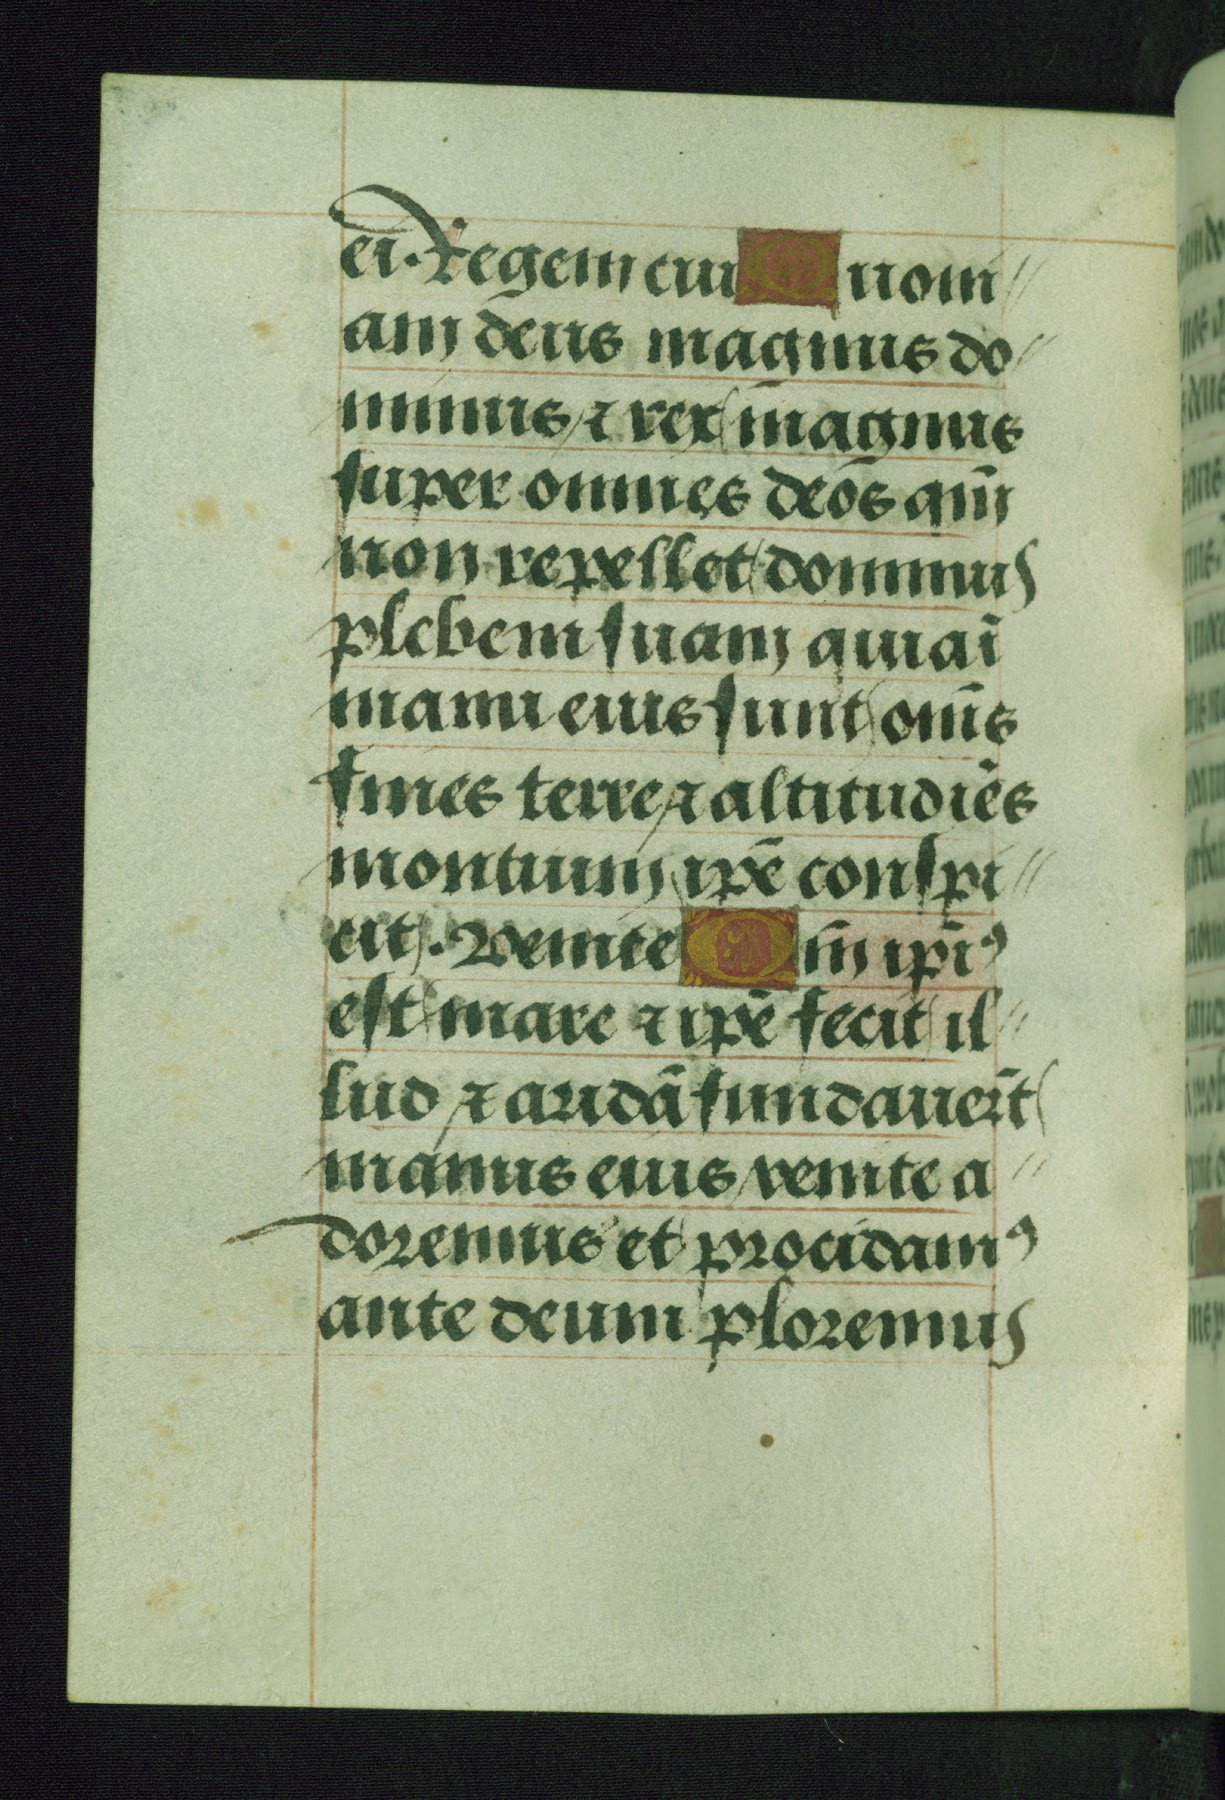 ei. Regem cui Quoni
am deus magnus do
minus ⁊ rex magnus
super omnes deos qm̄
non repellet dominus
plebem suam quia ī
manu eius sunt oms̄
fines terre ⁊ altitudiēs
montium ipē conspi
cit. Venite Qm̄ ipiꝰ
est mare ⁊ ipē fecit il
lud ⁊ aridā fundauer̄t
manus eius venite a
doremus et procidamꝰ
ante deum ploremus